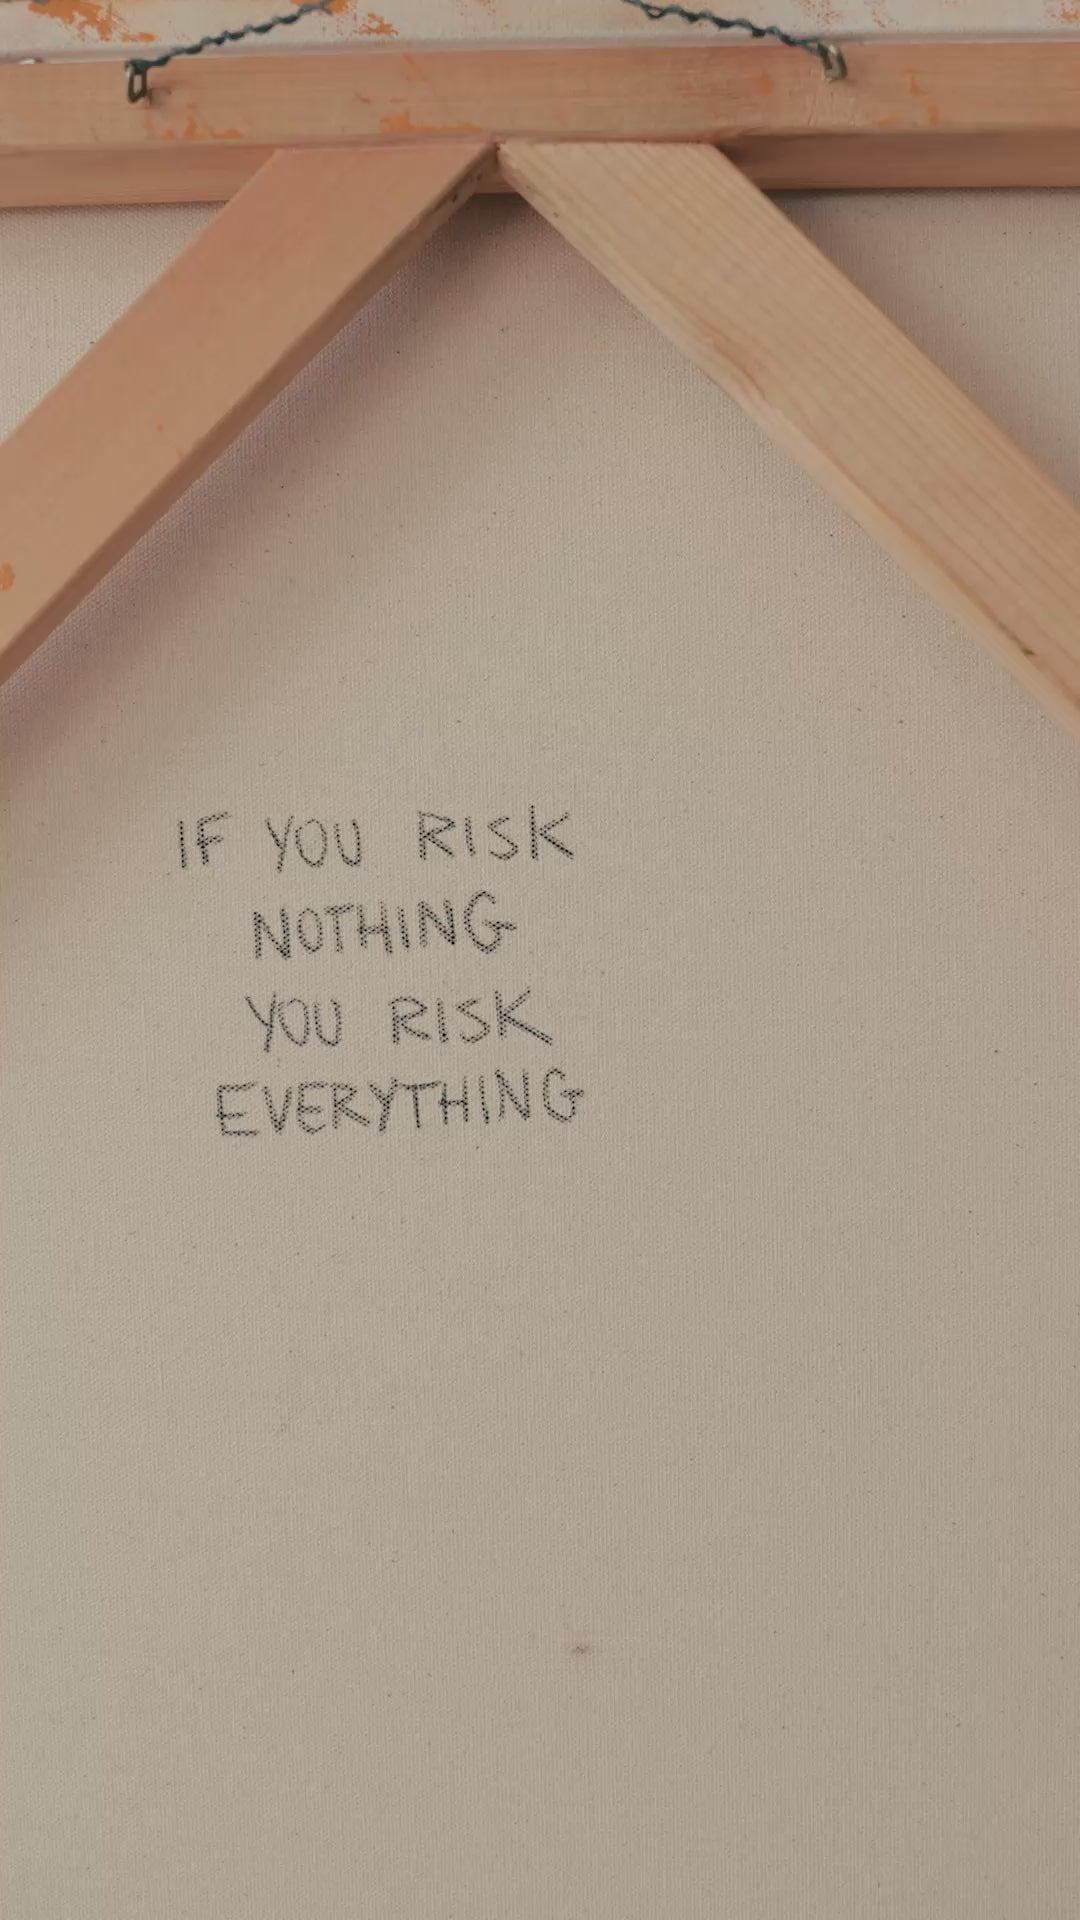 IF YOU RISK
NOTHING
YOU RISK
EVERYTHING